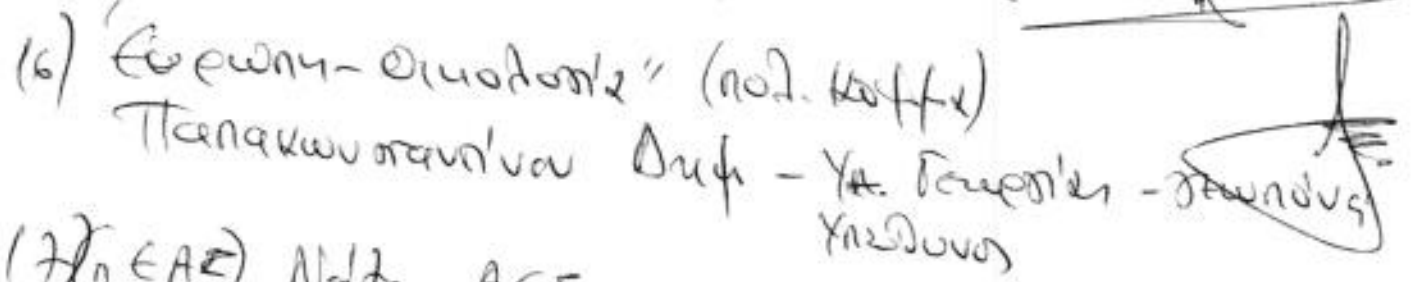 (6) "Ευρώπη-Οικολογία" (πολ. κόμμα)
Παπακωνσταντίνου Δημ - Υπ. Γεωργίας - γεωπόνος
Υπεύθυνος
(7)